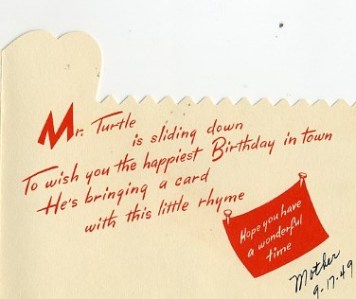 Mr. Turtle
is sliding down
To wish you the happiest Birthday in town
He's bringing a card
with this little rhyme
Hope you have
a wonderful
time
Mother
9-17-49